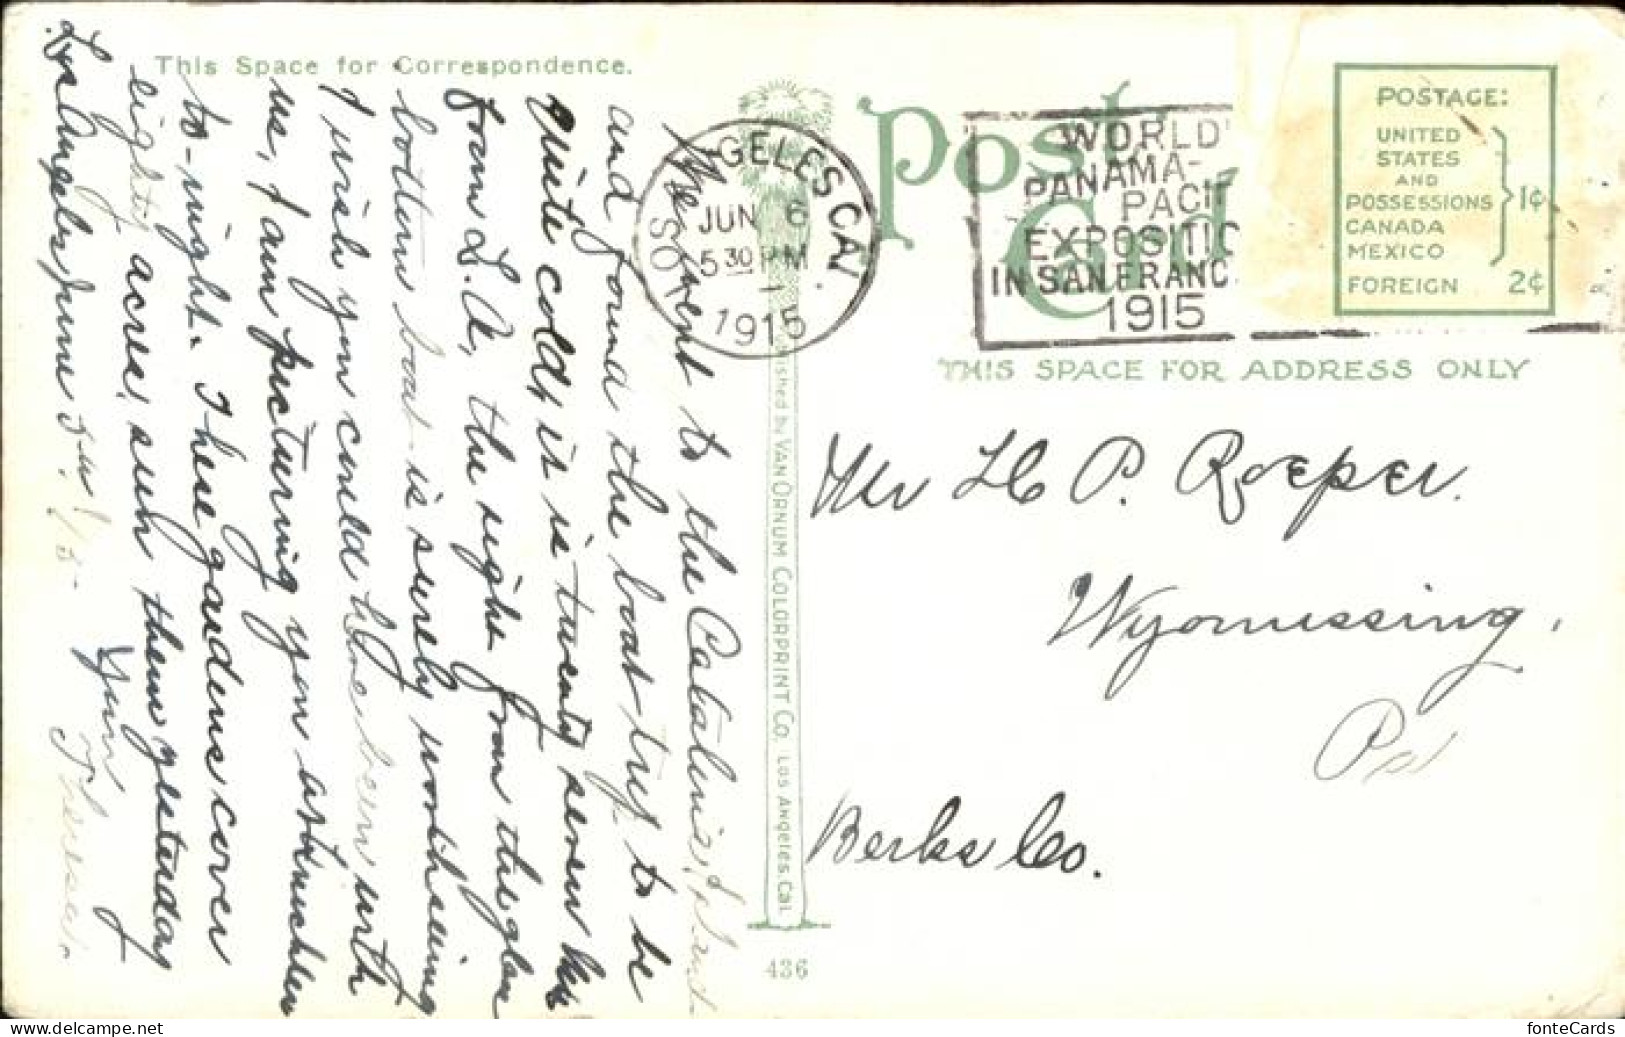 This Space for Correspondence.
Los Angeles June 5th 1915-
We went to the Catalina Island
and found the boat trip to be
quite cold, it is twenty seven
from L.A. the sight from the glass
bottom boat is surely worth seeing
I wish you could have been with
us, I am picturing you
to-night. These gardens cover
eighty acres, seen them yesterday
Post Card
LOS ANGELES CAL.
JUN 6
5 30 PM
1915
WORLD'
PANAMA-
PACIF
EXPOSITIO
IN SAN FRANC
1915
POSTAGE:
UNITED
STATES
AND
POSSESSIONS 1¢
CANADA
MEXICO
FOREIGN 2¢
THIS SPACE FOR ADDRESS ONLY
Mr H. P. Roeper.
Wyomissing,
Pa
Berks Co.
Published by VAN ORNUM COLORPRINT CO. LOS ANGELES, CAL.
436
fonteCards
www.delcampe.net